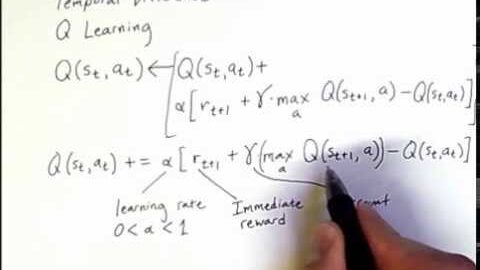 Temporal
Q Learning
Q(sₜ,aₜ) ← [Q(sₜ,aₜ) +
α[rₜ₊₁ + γ·max Q(sₜ₊₁,a) - Q(sₜ,aₜ)]]
a
Q(sₜ,aₜ) += α[rₜ₊₁ + γ(max Q(sₜ₊₁,a)) - Q(sₜ,aₜ)]
a
learning rate
0<α<1
Immediate
reward